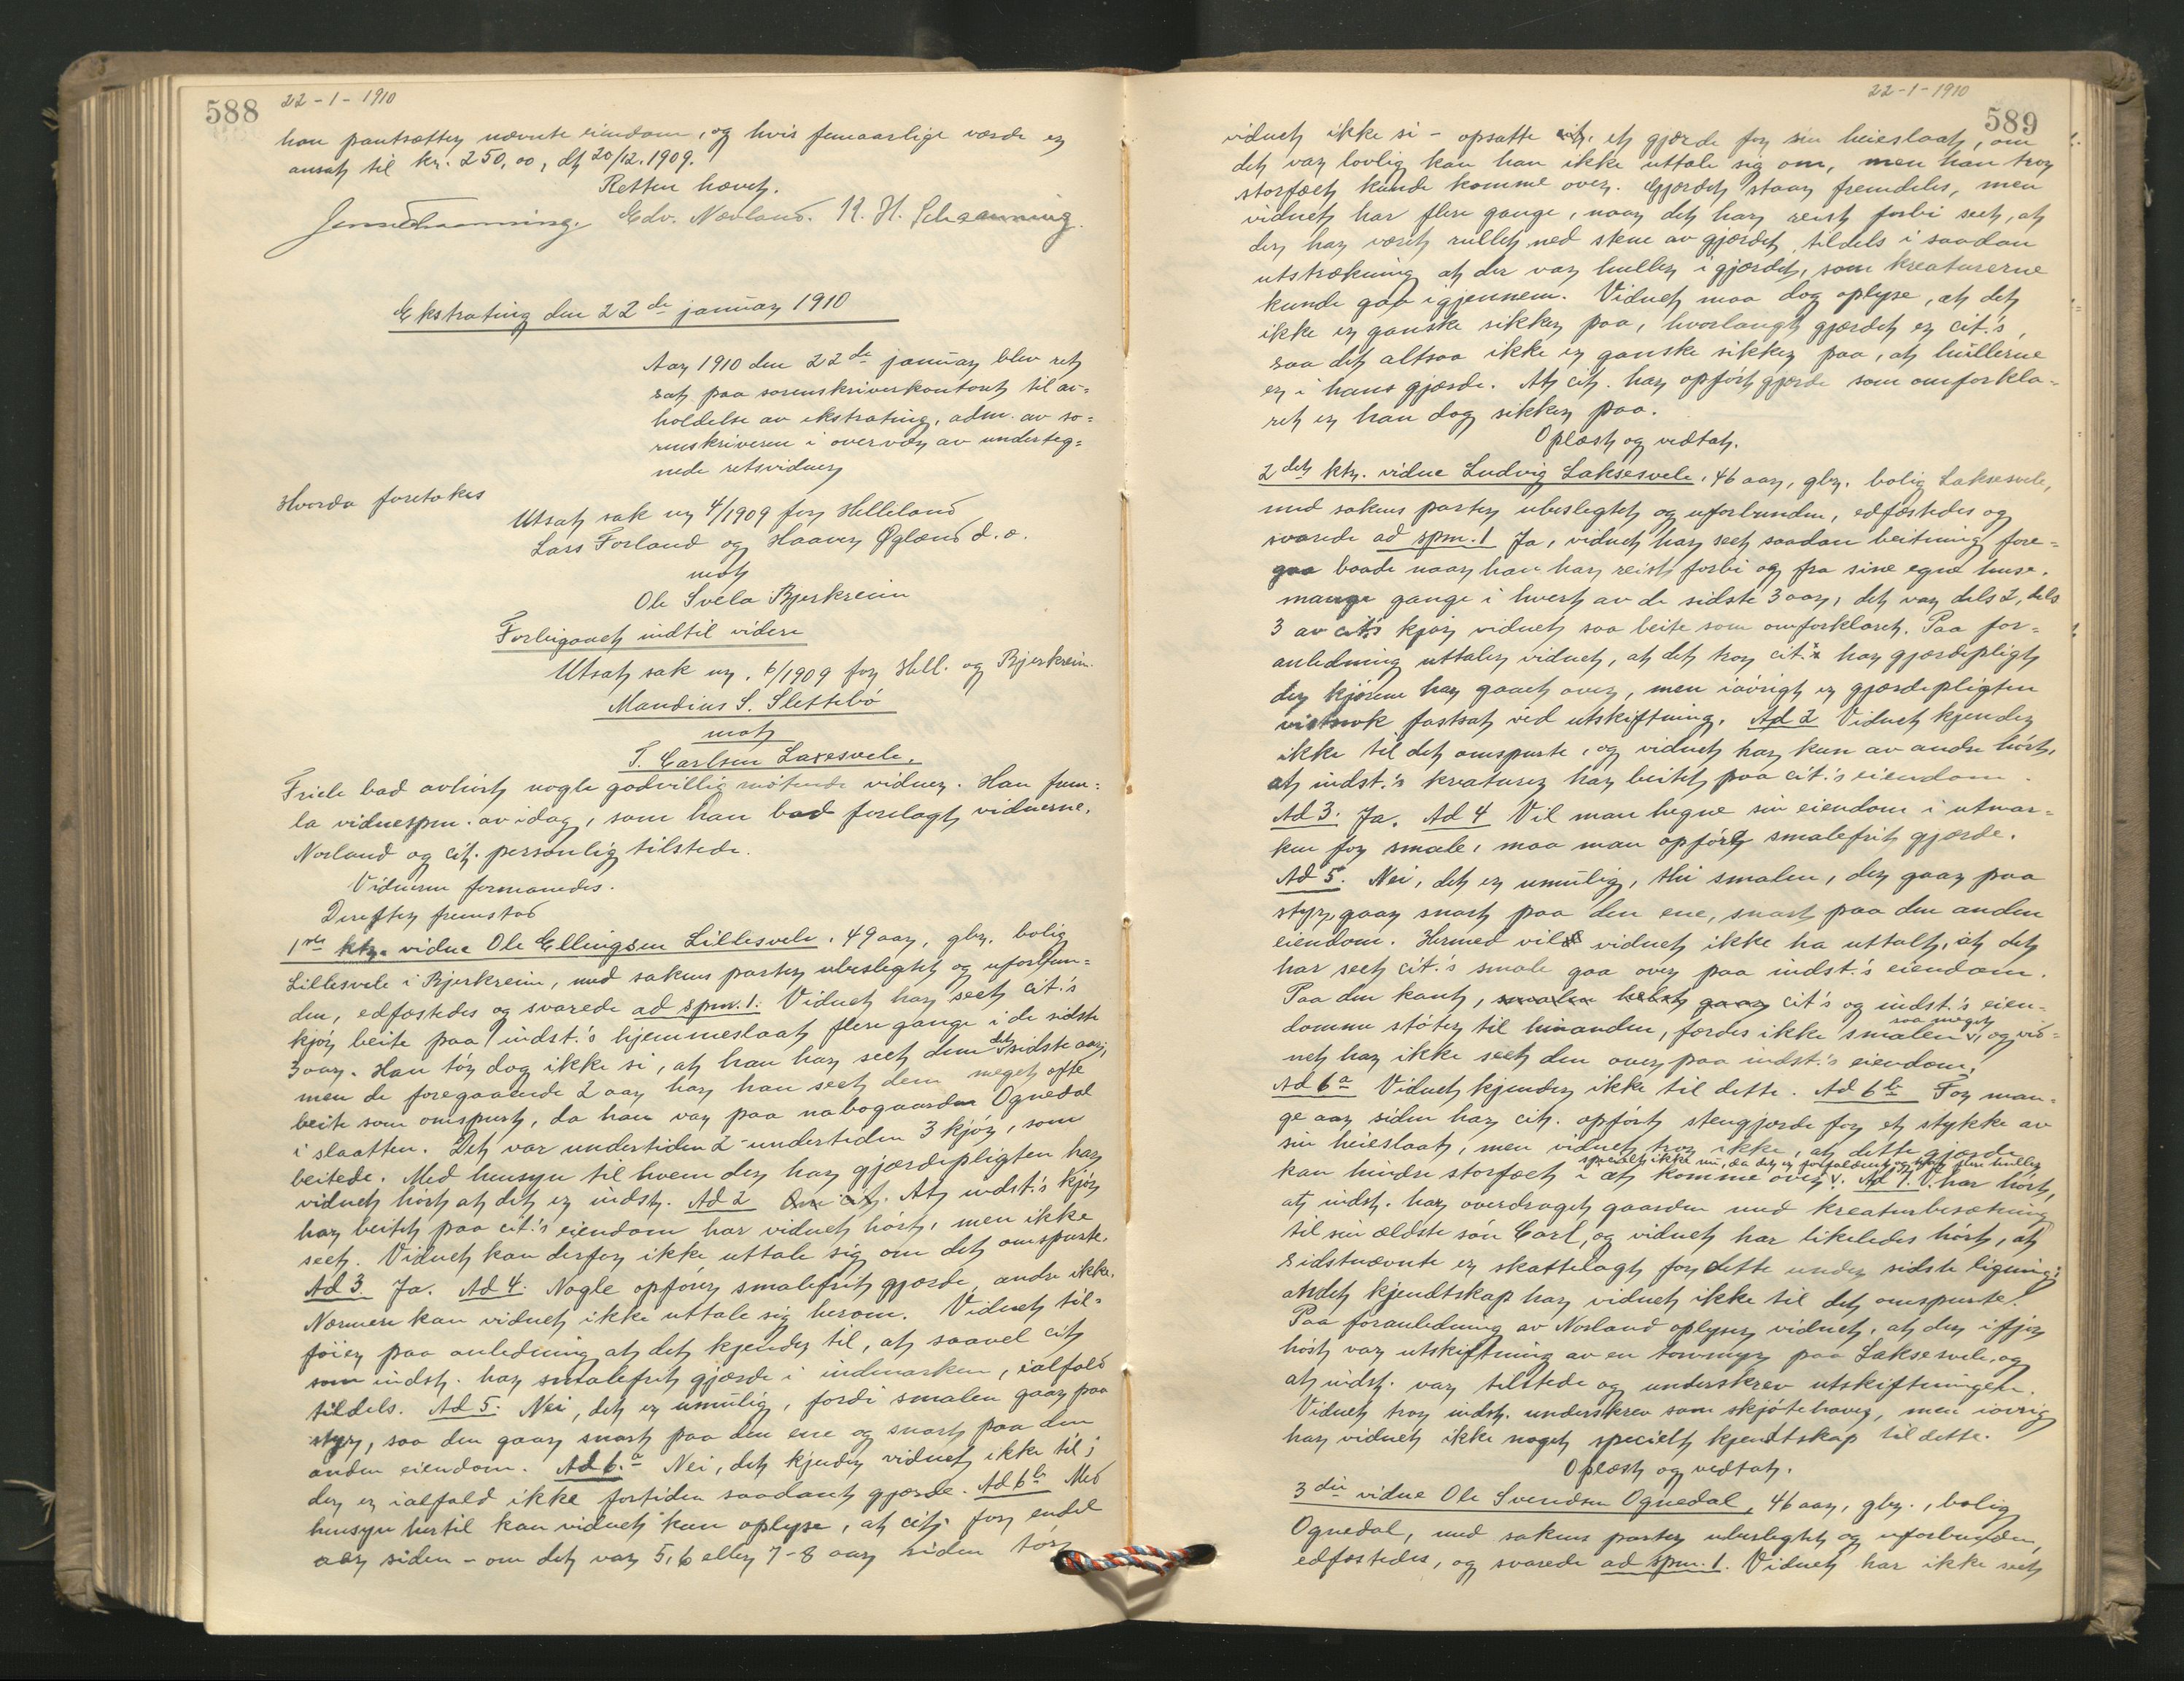 588
22-1-1910
han pantsætter nævnte eiendom, og hvis femaarlige værde er
ansat til kr. 250,00, dt 20/12.1909.
Retten hævet.
Edv. Nævland. R. H. Schaanning.
Ekstrating den 22de januar 1910
Aar 1910 den 22de januar blev ret
sat paa sorenskriverkontoret til av-
holdelse av ekstrating, adm. av so-
renskriveren i overvær av underteg-
nede retsvidner
Hvorda foretokes
Utsat sak nr 4/1909 for Helleland
Lars Forland og Haaver Øgland d. o.
mot
Ole Svela Bjerkreim
Forliggaaet indtil videre
Utsat sak nr. 6/1909 for Hell. og Bjerkreim.
Mandius S. Slettebó
mot
T. Carlsen Laxesvele.
Friele bad avhørt nogle godvillig møtende vidner. Han frem-
la vidnespm. av idag, som han bad forelagt vidnerne.
Norland og cit. personlig tilstede.
Vidnerne formanedes.
Derefter fremstod
1ste ktr. vidne Ole Ellingsen Lillesvele, 49 aar, gbr. bolig
Lillesvele i Bjerkreim, med sakens parter ubeslegtet og uforbun-
den, edfæstedes og svarede ad spm. 1: Vidnet har seet cit.'s
kjør beite paa indst.'s hjemmeslaat flere gange i de sidste
3 aar. Han tør dog ikke si, at han har seet dem det sidste aar,
men de foregaaende 2 aar har han seet dem meget ofte
beite som omspurt, da han var paa nabogaarden Ognedal
i slaatten. Det var undertiden 2 - undertiden 3 kjør, som
beitede. Med hensyn til hvem der har gjærdepligten har
vidnet hørt at det er indst. Ad 2 Om cit. At indst.'s kjør
har beitet paa cit.'s eiendom har vidnet hørt, men ikke
seet. Vidnet kan derfor ikke uttale sig om det omspurte.
Ad 3. Ja. Ad 4: Nogle opfører smalefrit gjærde, andre ikke.
Nærmere kan vidnet ikke uttale sig herom. Vidnet til-
føier paa anledning at det kjender til, at saavel cit
som indst. har smalefrit gjærde i indmarken, ialfald
tildels. Ad 5. Nei, det er umulig, fordi smalen gaar paa
styr, saa den gaar snart paa den ene og snart paa den
anden eiendom. Ad 6.a Nei, det kjender vidnet ikke til;
der er ialfald ikke fortiden saadant gjærde. Ad 6b Med
hensyn hertil kan vidnet kun oplyse, at cit. for endel
aar siden - om det var 5, 6 eller 7-8 aar siden tør
22-1-1910
589
vidnet ikke si - opsatte et gjærde for sin heieslaat, om
det var lovlig kan han ikke uttale sig om, men han tror
storfæet kunde komme over. Gjærdet staar fremdeles, men
vidnet har flere gange, naar det har reist forbi seet, at
der har været rullet ned stene av gjærdet, tildels i saadan
utstrækning at der var huller i gjærdet, som kreaturerne
kunde gaa igjennem. Vidnet maa dog oplyse, at det
ikke er ganske sikker paa, hvorlangt gjærdet er cit.'s,
saa det altsaa ikke er ganske sikker paa, at hullerne
er i hans gjærde. At cit. har opført gjærde som omforkla-
ret er han dog sikker paa.
Oplæst og vedtat.
2det ktr. vidne Ludvig Laksesvele, 46 aar, gbr. bolig Laksesvele,
med sakens parter ubeslegtet og uforbunden, edfæstedes og
svarede ad spm. 1 Ja, vidnet har seet saadan beitning fore-
gaa baade naar han har reist forbi og fra sine egne huse,
mange gange i hvert av de sidste 3 aar, det var dels 2, dels
3 av cit's kjør vidnet saa beite som omforklaret. Paa for-
anledning uttaler vidnet, at det tror cit. har gjærdepligt
der kjørene har gaaet over, men iøvrigt er gjærdepligten
vistnok fastsat ved utskiftning. Ad 2 Vidnet kjender
ikke til det omspurte, og vidnet har kun av andre hørt,
at indst.'s kreaturer har beitet paa cit.'s eiendom.
Ad 3. Ja. Ad 4 Vil man hegne sin eiendom i utmar-
ken for smale, maa man opføre smalefrit gjærde.
Ad 5. Nei, det er umulig, thi smalen, der gaar paa
styr, gaar snart paa den ene, snart paa den anden
eiendom. Hermed vil vidnet ikke ha uttalt, at det
har seet cit.'s smale gaa over paa indst.'s eiendom.
Paa den kant, smalen helst gaar cit's og indst.'s eien-
domme støter til hinanden, færdes ikke smalen saa meget, og vid-
net har ikke seet den over paa indst.'s eiendom.
Ad 6a Vidnet kjender ikke til dette. Ad 6b For man-
ge aar siden har cit. opført stengjærde for et stykke av
sin heieslaat, men vidnet tror ikke, at dette gjærde
kan hindre storfæet i at komme over specielt ikke nu, da det er forfaldent og har flere huller. Ad 7. V. har hørt,
at indst. har overdraget gaarden med kreaturbesætning
til sin ældste søn Carl, og vidnet har likeledes hørt, at
sidstnævnte er skattelagt for dette under sidste ligning;
andet kjendtskap har vidnet ikke til det omspurte.
Paa foranledning av Norland oplyser vidnet, at der ifjor
høst var utskiftning av en torvmyr paa Laksesvele, og
at indst. var tilstede og underskrev utskiftningen.
Vidnet tror indst. underskrev som skjøtehaver, men iøvrig
har vidnet ikke noget specielt kjendtskap til dette.
Oplæst og vedtat.
3die vidne Ole Svendsen Ognedal, 46 aar, gbr., bolig
Ognedal, med sakens parter ubeslegtet og uforbunden,
edfæstedes, og svarede ad spm. 1. Vidnet har ikke seet